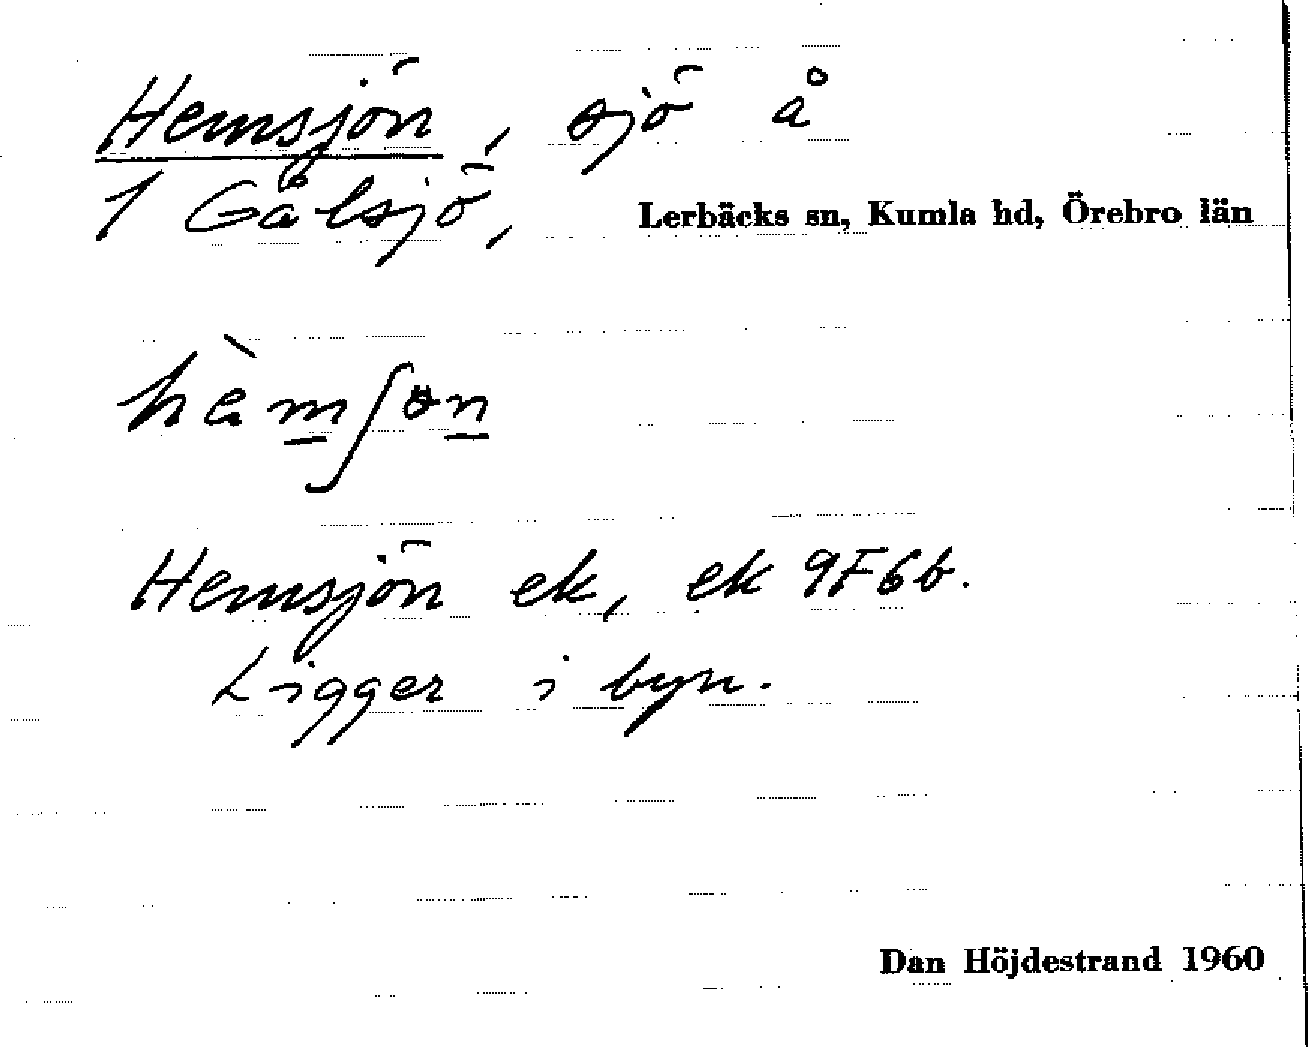 Hemsjön, sjö å
1 Gålsjö, Lerbäcks sn, Kumla hd, Örebro län
Hemsjön ek, ek 9F6b.
Ligger i byn.
Dan Höjdestrand 1960